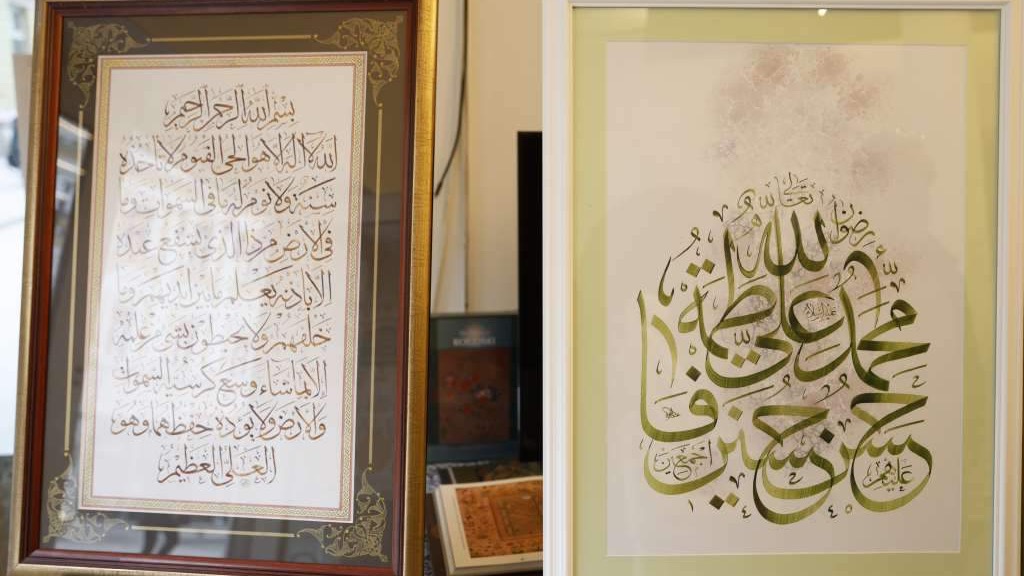 بسم الله الرحمن الرحيم
الله لا اله الا هو الحى القيوم لا تاخذه
سنة ولا نوم له ما فى السموات وما
فى الارض من ذا الذى يشفع عنده
الا باذنه يعلم ما بين ايديهم وما
خلفهم ولا يحيطون بشىء من علمه
الا بما شاء وسع كرسيه السموات
والارض ولا يوده حفظهما وهو
العلى العظيم
رضوان الله تعالى
الله محمد على فاطمة
حسن حسين
عليهم اجمعين
١٤٤٥